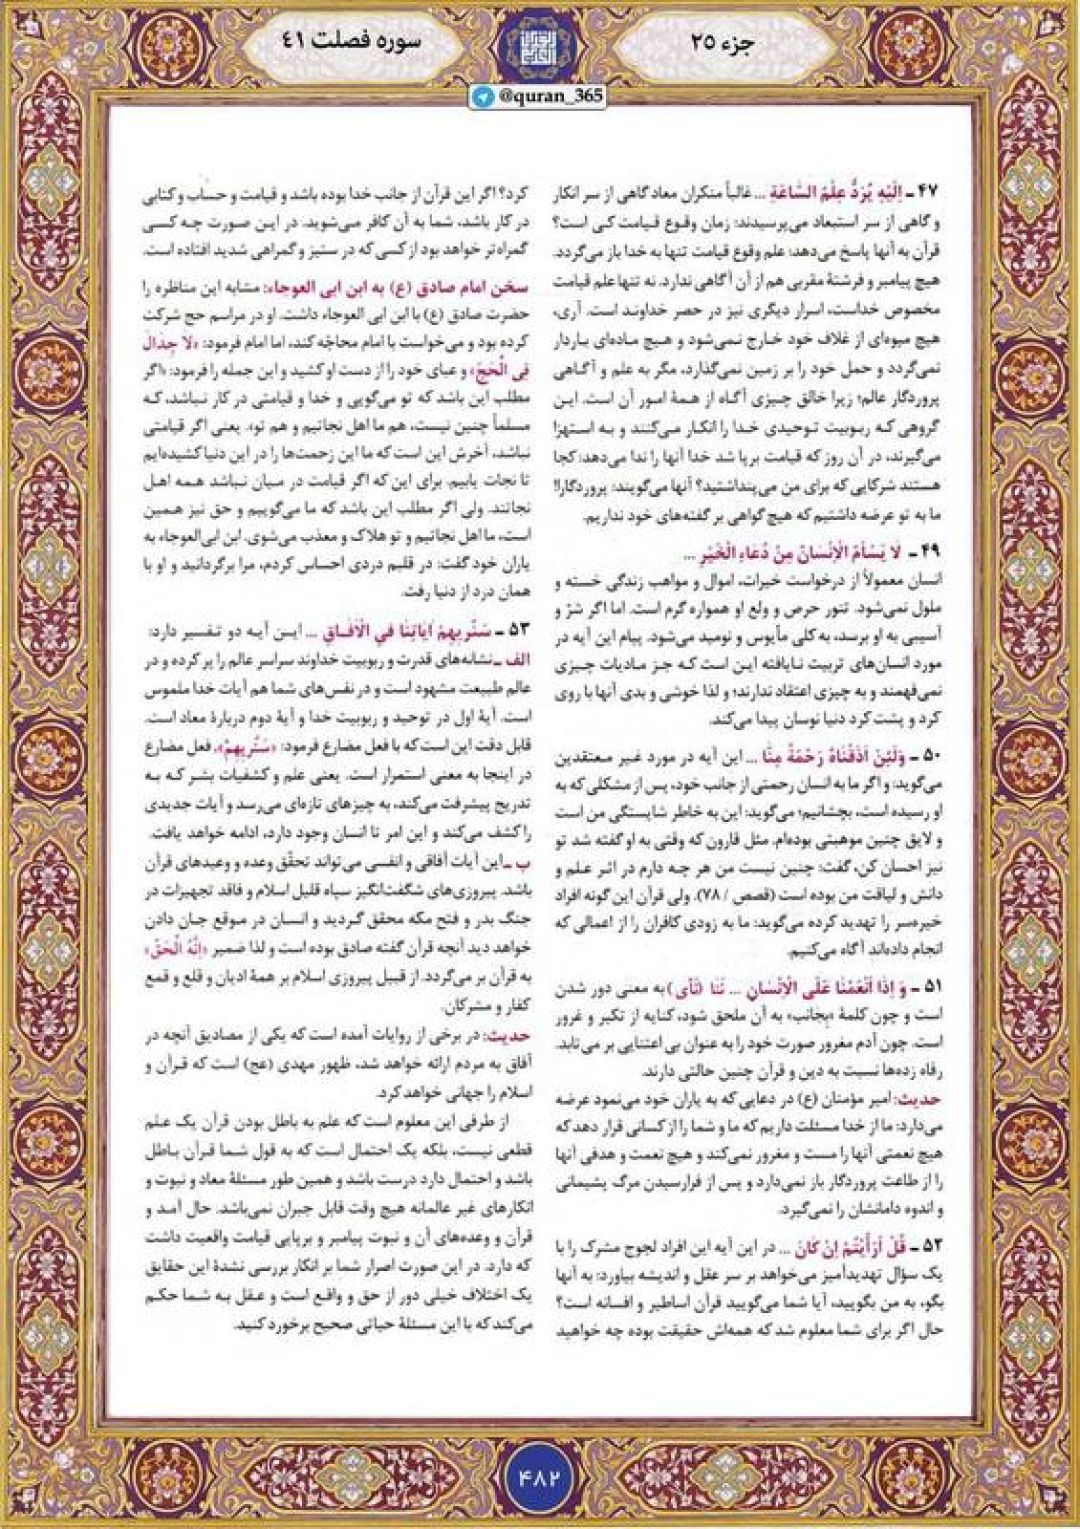 جزء ۲۵
سوره فصلت ۴۱
@quran_365
۴۷ ـ اِلَیْهِ یُرَدُّ عِلْمُ السَّاعَةِ ... غالباً منکران معاد گاهی از سر انکار
و گاهی از سر استبعاد می‌پرسیدند: زمان وقوع قیامت کی است؟
قرآن به آنها پاسخ می‌دهد: علم وقوع قیامت تنها به خدا باز می‌گردد.
هیچ پیامبر و فرشتهٔ مقربی هم از آن آگاهی ندارد. نه تنها علم قیامت
مخصوص خداست، اسرار دیگری نیز در حصر خداوند است. آری،
هیچ میوه‌ای از غلاف خود خارج نمی‌شود و هیچ ماده‌ای باردار
نمی‌گردد و حمل خود را بر زمین نمی‌گذارد، مگر به علم و آگاهی
پروردگار عالم؛ زیرا خالق چیزی آگاه از همهٔ امور آن است. این
گروهی که ربوبیت توحیدی خدا را انکار می‌کنند و به استهزا
می‌گیرند، در آن روز که قیامت برپا شد خدا آنها را ندا می‌دهد: کجا
هستند شرکایی که برای من می‌پنداشتید؟ آنها می‌گویند: پروردگارا!
ما به تو عرضه داشتیم که هیچ گواهی بر گفته‌های خود نداریم.
۴۹ ـ لَا یَسْاَمُ الْاِنْسَانُ مِنْ دُعَاءِ الْخَیْرِ ...
انسان معمولاً از درخواست خیرات، اموال و مواهب زندگی خسته و
ملول نمی‌شود. تنور حرص و ولع او همواره گرم است. اما اگر شرّ و
آسیبی به او برسد، به کلی مأیوس و نومید می‌شود. پیام این آیه در
مورد انسان‌های تربیت نایافته این است که جز مادیات چیزی
نمی‌فهمند و به چیزی اعتقاد ندارند؛ و لذا خوشی و بدی آنها با روی
کرد و پشت کرد دنیا نوسان پیدا می‌کند.
۵۰ ـ وَلَئِنْ اَذَقْنَاهُ رَحْمَةً مِنَّا ... این آیه در مورد غیر معتقدین
می‌گوید: و اگر ما به انسان رحمتی از جانب خود، پس از مشکلی که به
او رسیده است، بچشانیم؛ می‌گوید: این به خاطر شایستگی من است
و لایق چنین موهبتی بوده‌ام. مثل قارون که وقتی به او گفته شد تو
نیز احسان کن، گفت: چنین نیست من هر چه دارم در اثر علم و
دانش و لیاقت من بوده است (قصص / ۷۸). ولی قرآن این گونه افراد
خیره‌سر را تهدید کرده می‌گوید: ما به زودی کافران را از اعمالی که
انجام داده‌اند آگاه می‌کنیم.
۵۱ ـ وَ اِذَا اَنْعَمْنَا عَلَی الْاِنْسَانِ ... نَئَا (نَأی) به معنی دور شدن
است و چون کلمهٔ «بِجانب» به آن ملحق شود، کنایه از تکبر و غرور
است. چون آدم مغرور صورت خود را به عنوان بی اعتنایی بر می‌تابد.
رفاه زده‌ها نسبت به دین و قرآن چنین حالتی دارند.
حدیث: امیر مؤمنان (ع) در دعایی که به یاران خود می‌نمود عرضه
می‌دارد: ما از خدا مسئلت داریم که ما و شما را از کسانی قرار دهد که
هیچ نعمتی آنها را مست و مغرور نمی‌کند و هیچ نعمت و هدفی آنها
را از طاعت پروردگار باز نمی‌دارد و پس از فرارسیدن مرگ پشیمانی
و اندوه دامانشان را نمی‌گیرد.
۵۲ ـ قُلْ اَرَاَیْتُمْ اِنْ کَانَ ... در این آیه این افراد لجوج مشرک را با
یک سؤال تهدیدآمیز می‌خواهد بر سر عقل و اندیشه بیاورد: به آنها
بگو، به من بگویید، آیا شما می‌گویید قرآن اساطیر و افسانه است؟
حال اگر برای شما معلوم شد که همه‌اش حقیقت بوده چه خواهید
کرد؟ اگر این قرآن از جانب خدا بوده باشد و قیامت و حساب و کتابی
در کار باشد، شما به آن کافر می‌شوید. در این صورت چه کسی
گمراه‌تر خواهد بود از کسی که در ستیز و گمراهی شدید افتاده است.
سخن امام صادق (ع) به ابن ابی العوجاء: مشابه این مناظره را
حضرت صادق (ع) با ابن ابی العوجاء داشت. او در مراسم حج شرکت
کرده بود و می‌خواست با امام محاجّه کند، اما امام فرمود: «لَا جِدَالَ
فِی الْحَجِّ» و عبای خود را از دست او کشید و این جمله را فرمود: «اگر
مطلب این باشد که تو می‌گویی و خدا و قیامتی در کار نباشد، که
مسلماً چنین نیست، هم ما اهل نجاتیم و هم تو». یعنی اگر قیامتی
نباشد، آخرش این است که ما این زحمت‌ها را در این دنیا کشیده‌ایم
تا نجات یابیم. برای این که اگر قیامت در میان نباشد همه اهل
نجاتند. ولی اگر مطلب این باشد که ما می‌گوییم و حق نیز همین
است، ما اهل نجاتیم و تو هلاک و معذب می‌شوی. ابن ابی‌العوجاء به
یاران خود گفت: در قلبم دردی احساس کردم، مرا برگردانید و او با
همان درد از دنیا رفت.
۵۳ ـ سَنُریهِمْ ایَاتِنَا فِی الْافَاقِ ... این آیه دو تفسیر دارد:
الف ـ نشانه‌های قدرت و ربوبیت خداوند سراسر عالم را پر کرده و در
عالم طبیعت مشهود است و در نفس‌های شما هم آیات خدا ملموس
است. آیهٔ اول در توحید و ربوبیت خدا و آیهٔ دوم دربارهٔ معاد است.
قابل دقت این است که با فعل مضارع فرمود: «سَنُریهِمْ». فعل مضارع
در اینجا به معنی استمرار است. یعنی علم و کشفیات بشر که به
تدریج پیشرفت می‌کند، به چیزهای تازه‌ای می‌رسد و آیات جدیدی
را کشف می‌کند و این امر تا انسان وجود دارد، ادامه خواهد یافت.
ب ـ این آیات آفاقی و انفسی می‌تواند تحقّق وعده و وعیدهای قرآن
باشد. پیروزی‌های شگفت‌انگیز سپاه قلیل اسلام و فاقد تجهیزات در
جنگ بدر و فتح مکه محقق گردید و انسان در موقع جان دادن
خواهد دید آنچه قرآن گفته صادق بوده است و لذا ضمیر «اِنَّهُ الْحَقّ»
به قرآن بر می‌گردد. از قبیل پیروزی اسلام بر همهٔ ادیان و قلع و قمع
کفار و مشرکان.
حدیث: در برخی از روایات آمده است که یکی از مصادیق آنچه در
آفاق به مردم ارائه خواهد شد، ظهور مهدی (عج) است که قرآن و
اسلام را جهانی خواهد کرد.
از طرفی این معلوم است که علم به باطل بودن قرآن یک علم
قطعی نیست، بلکه یک احتمال است که به قول شما قرآن باطل
باشد و احتمال دارد درست باشد و همین طور مسئلهٔ معاد و نبوت و
انکارهای غیر عالمانه هیچ وقت قابل جبران نمی‌باشد. حال آمد و
قرآن و وعده‌های آن و نبوت پیامبر و برپایی قیامت واقعیت داشت
که دارد. در این صورت اصرار شما بر انکار بررسی نشدهٔ این حقایق
یک اختلاف خیلی دور از حق و واقع است و عقل به شما حکم
می‌کند که با این مسئلهٔ حیاتی صحیح برخورد کنید.
۴۸۲